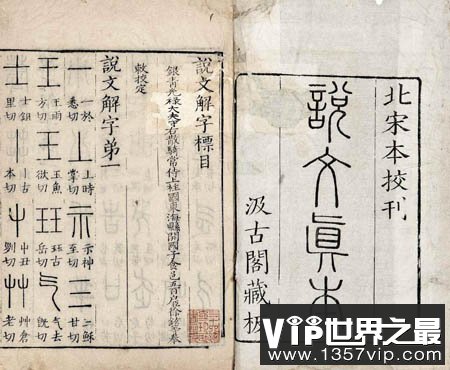 北宋本校刊
說文眞本
汲古閣藏板
說文解字標目
銀青光祿大夫守右散騎常侍上柱國東海縣開國子食邑五百戶臣徐鉉等奉
敕校定
說文解字弟一
一 一於悉切 丄 上時掌切 示 示神至切 三 三穌甘切
王 王雨方切 玉 玉魚欲切 玨 玨古岳切 气 气去旣切
士 士鉏里切 丨 丨古本切 屮 屮丑列切 艸 艸倉老切
VIP世界之最
www.1357vip.com